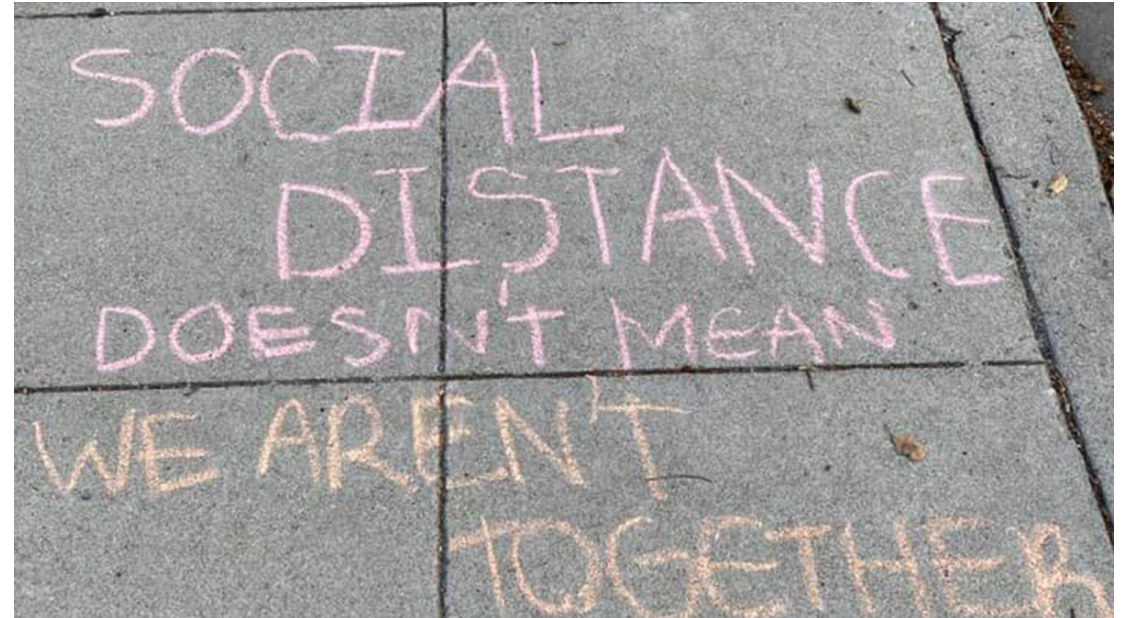 SOCIAL
DISTANCE
DOESN'T MEAN
WE AREN'T
TOGETHER